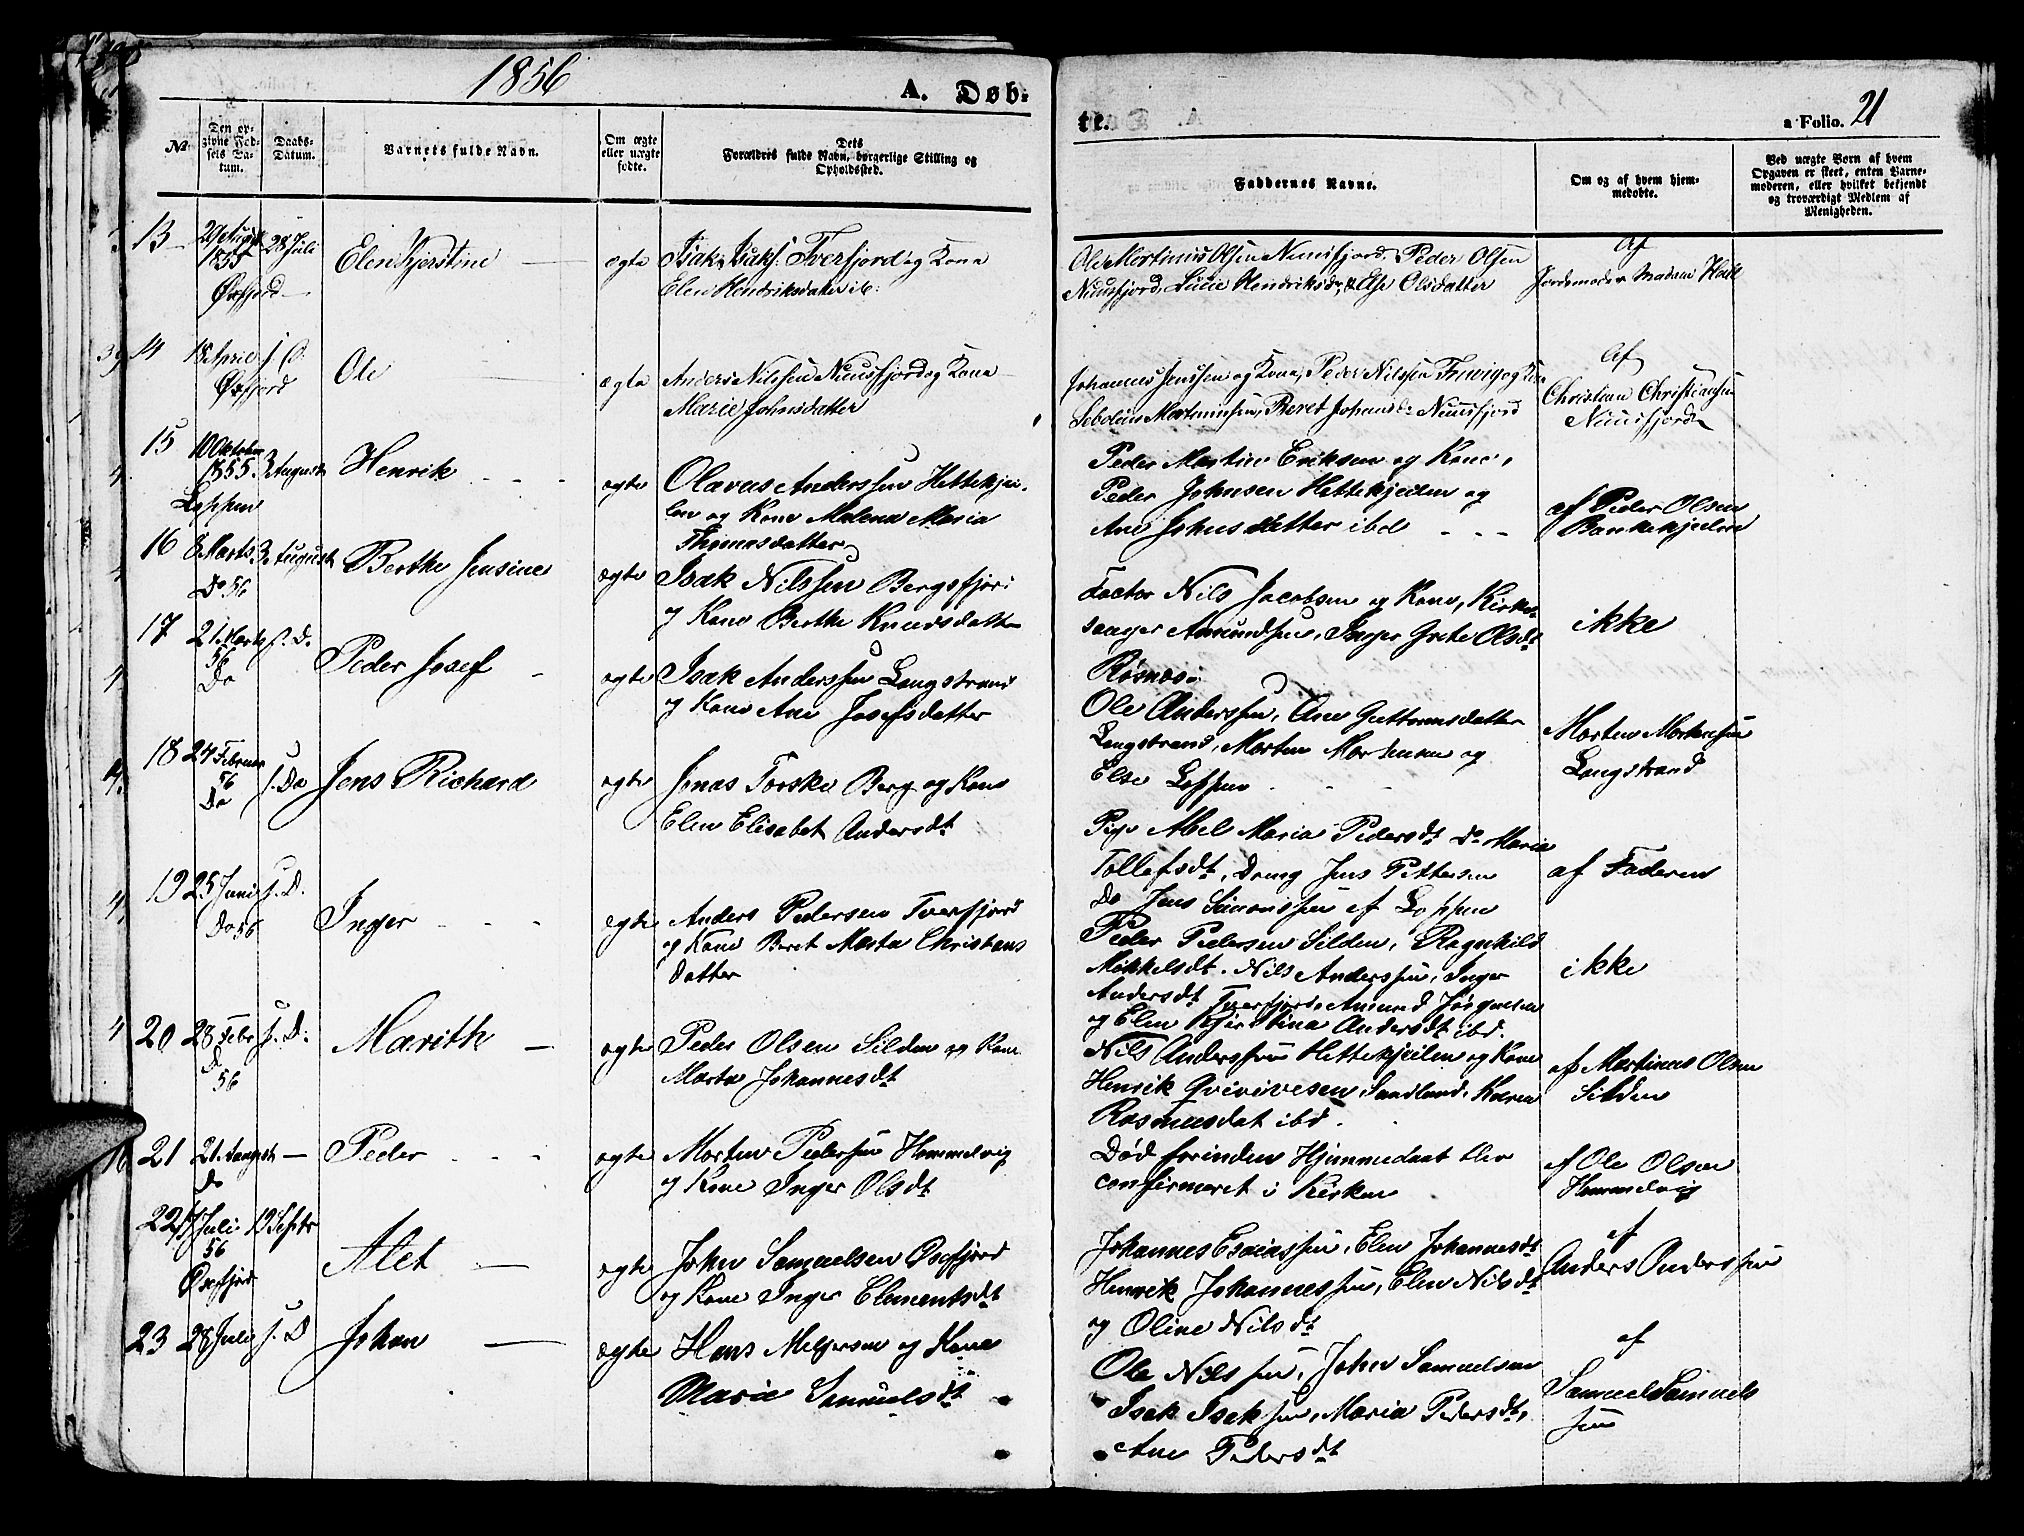 1856
A. Døb-
te.
a Folio. 21
No
Den opgivne Fødsels Datum.
Daabs-Datum.
Barnets fulde Navn.
Om ægte eller uægte fødte.
Dets Forældres fulde Navn, borgerlige Stilling og Opholdssted.
Faddernes Navne.
Om og af hvem hjemmedøbte.
Ved uægte Børn af hvem Opgaven er skeet, enten Barnemoderen, eller hvilket bekjendt og troværdigt Medlem af Menigheden.
13 29 August 1855 28 Juli Elen Kjerstine ægte Isak Isaks: Tverfjord og Kona
Øxfjord Elen Hendriksdatter ib:
Ole Mortinus Olsen Nuusfjord, Peder Olsen
Nuusfjord, Lucie Hendriksdr, & Else Olsdatter
Af
Jordemoder Madam Hall
14 18 April s. D. Ole ægte Anders Nilssen Nuusfjord og Kona
Øxfjord Marie Johnsdatter
Johannes Jenssen og Kona, Peder Nilssen
Mortensen, Beret Johansd: Nuusfjord
Af
Christian Christiansen
Nuusfjord
15 10 Oktober 1855 3 August Henrik ægte Olavus Anderssen Hettekjei-
Loppen len og Kone Malena Maria
Thomasdatter
Peder Martin Eriksen og Kone,
Peder Johnsen Hettekjeilen og
Ane Johnsdatter ibd
af Peder Olsen
Bankekjeilen
16 8 Marts 3 August Berthe Jensine ægte Isak Nilssen Bergsfjord
Do 56 og Kone Berthe Knudsdatter
Factor Nils Jacobsen og Kone, Kirke-
sanger Amundsen, Inger Grete Olsdt
Røsnæs
ikke
17 21 Marts s. D. Peder Josef ægte Isak Anderssen Langstrand
56
Do og Kone Ane Josefsdatter
Ole Anderssen, Ane Guttormsdatter
Langstrand, Morten Mortensen og
Else Loppen
Morten Mortensen
Langstrand
18 24 Februar s. Do Jens Richard ægte Jonas Torske Berg og Kone
56
Do Elen Elisabet Andersdt
Pige Abel Maria Pedersdt Do Maria
Tollefsdt, Dreng Jens Pettersen
Do Jens Simonssen af Loppen
af Faderen
19 25 Juni s. D. Inger ægte Anders Pedersen Tverfjord
Do 56 og Kone Beret Marta Christians
datter
Peder Pedersen Silden, Ragnhild
Mikkelsdt. Nils Anderssen, Inger
Andersdt Tverfjord Amund Jørgensen
og Elen Kjerstina Andersdt ibd.
ikke
20 28 Febr s. D: Marith ægte Peder Olsen Silden og Kone
D
56 Marta Johannesdt
Nils Anderssen Hettekjeilen og Kone
Henrik Sandland, Karen
Rasmusdat ibd.
af Martinus Olsen
Silden
21 21 August Peder ægte Morten Pederssen Hammelvig
Do og Kone Inger Olsdt
Død forinden Hjemmedaab blev
confirmeret i Kirken
af Ole Olsen
Hammelvig
22 Juli 19 Septr Alet ægte John Samuelsen Øxfjord
56
Øxfjord og Kone Inger Clementsdt
Johannes Esaiassen, Elen Johannesdt
Henrik Johannessen, Elen Nilsdt
og Oline Nilsdt
af
Anders Anderssen
23 28 Juli s. D Johan ægte Hans Meljersen og Kone
Marie Samuelsdt
Ole Nilssen, John Samuelsen
Isak Isaksen, Maria Pedersdt,
Ane Pedersdt
af
Samuel Samuels
sen